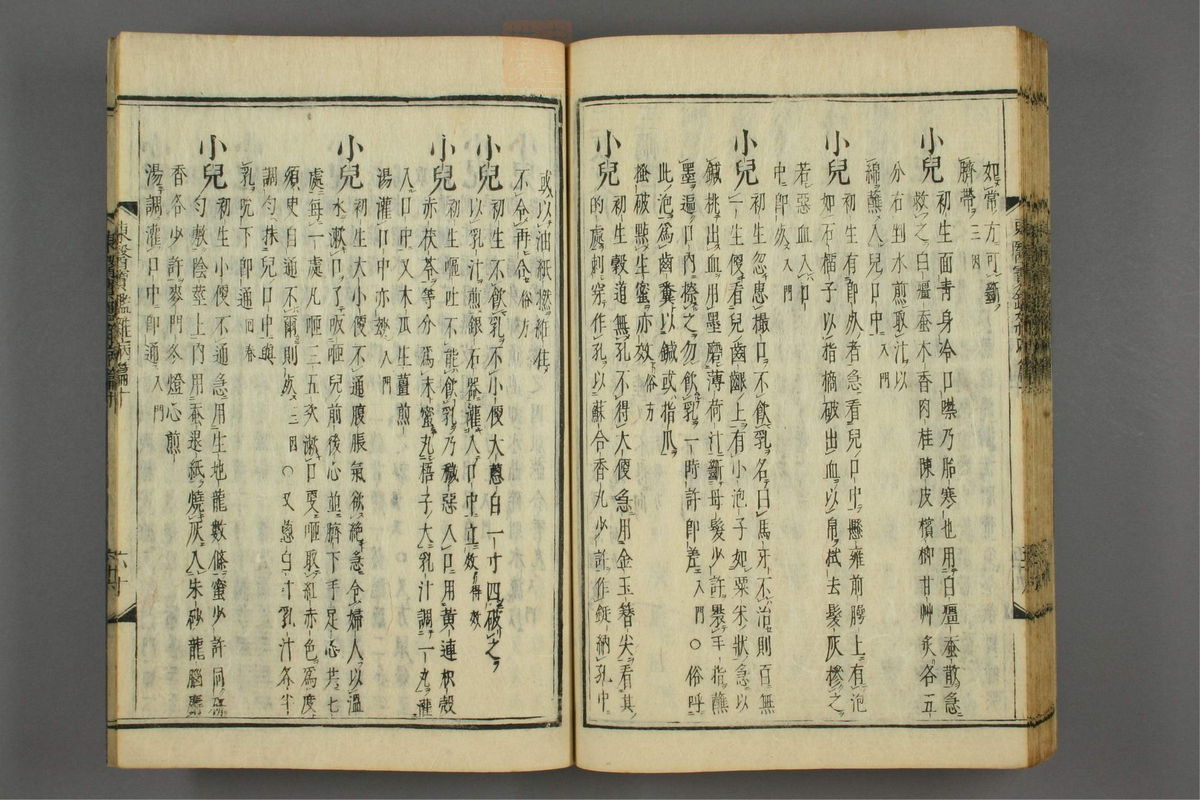 如常方可斷
臍帶三四
小兒初生面靑身冷口噤乃胎寒也用白殭蚕散急
救之白殭蚕木香肉桂陳皮檳榔甘艸炙各五
分右剉水煎取汁以
綿蘸入兒口中入門
小兒初生有卽死者急看兒口中懸雍前腭上有泡
如石榴子以指摘破出血以帛拭去髮灰糝之
若惡血入口
中卽死入門
小兒初生忽患撮口不飮乳名曰馬牙不治則百無
一生便看兒齒齦上有小泡子如粟米狀急以
鍼挑出血用墨磨薄荷汁斷母髮少許裹手指蘸
墨遍口內擦之勿飮乳一時許卽差入門○俗呼
此泡爲齒糞以鍼或指爪
搔破點生蜜亦效俗方
小兒初生穀道無孔不得大便急用金玉簪尖看其
的處刺穿作孔以蘇合香丸少許作鋌納孔中
或以油紙撚紝住
不令再合俗方
小兒初生不飮乳不小便大蔥白一寸四破之
以乳汁煎銀石器灌入口中立效得效
小兒初生嘔吐不能飮乳乃穢惡入口用黃連枳殼
赤茯苓等分爲末蜜丸梧子大乳汁調一丸灌
入口中又木瓜生薑煎
湯灌口中亦效入門
小兒初生大小便不通腹脹氣欲絶急令婦人以溫
水漱口了吸咂兒前後心並臍下手足心共七
處每一處凡咂三五次漱口更咂取紅赤色爲度
須臾自通不爾則死三四○又蔥白三寸乳汁各半
調勻抹兒口中與
乳吮下卽通回春
小兒初生小便不通急用生地龍數條蜜少許同研
勻敷陰莖上內用蚕退紙燒灰入朱砂龍腦麝
香各少許麥門冬燈心煎
湯調灌口中卽通入門
東醫寶鑑雜病篇十